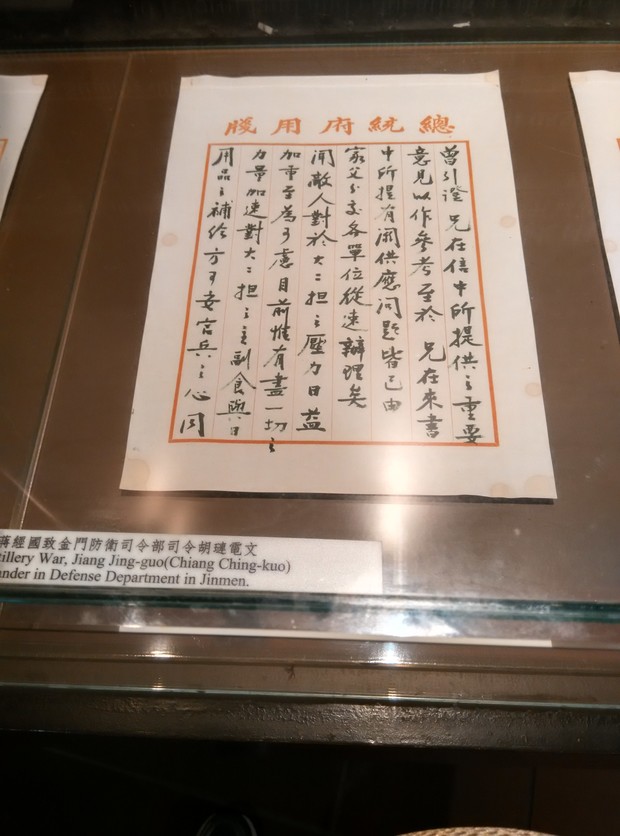 總統府用牋
曾引證 兄在信中所提供之重要
意見以作參考至於 兄在來書
中所提有関供應问題皆已由
家父分交各單位從速辦理矣
闻敵人對於大二担之壓力日益
加重至為可慮目前惟有盡一切之
力量加速對大二担之主副食與日
用品之補给方可安官兵之心同
蔣經國致金門防衛司令部司令胡璉電文
tillery War, Jiang Jing-guo(Chiang Ching-kuo)
nder in Defense Department in Jinmen.